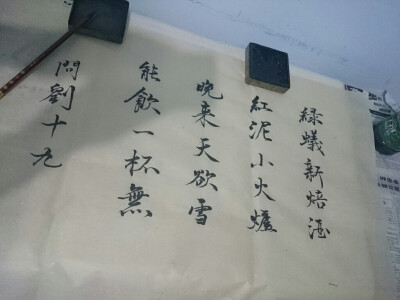 綠蟻新焙酒
紅泥小火爐
晚来天欲雪
能飲一杯無
問劉十九